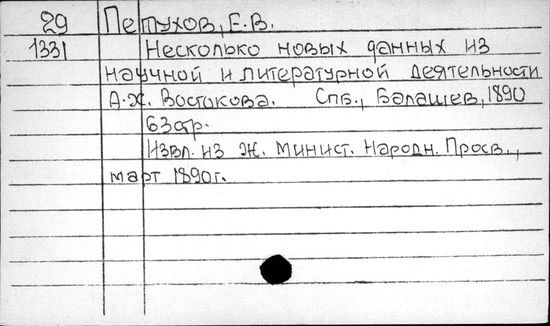 29 Петухов, Е.В.
1331 Несколько новых данных из
научной и литературной деятельности
А.Х. Востокова. Спб., Балашев, 1890
63стр.
Извл. из Ж. Минист. Народн. Просв.,
март 1890г.